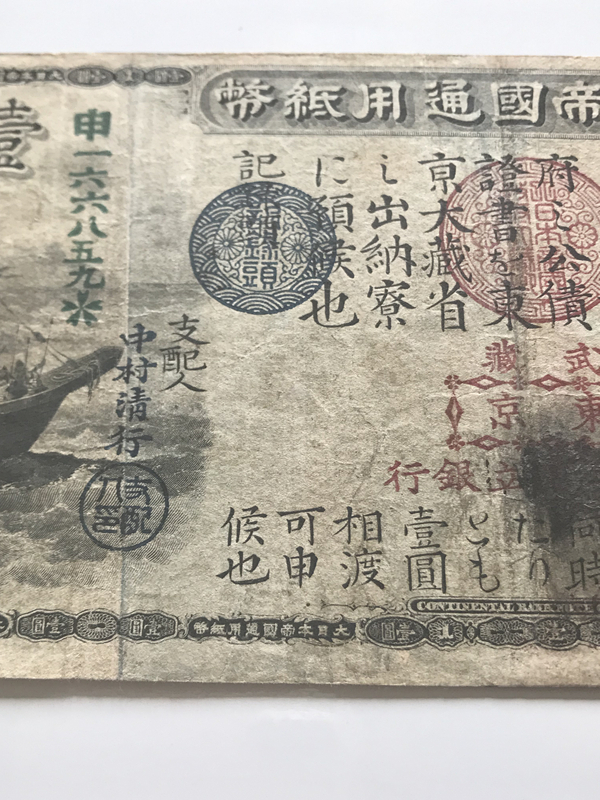 帝國通用紙幣
府之公債
證書を東
京大藏省
之出納寮
に預候也
記
武藏
東京
立銀行
何時
たり
とも
壹圓
相渡
可申
候也
支配人
中村清行
支配人印
申一六六八五九
壹
CONTINENTAL BANK NOTE
大日本帝國通用紙幣
壹圓
一
壹圓
1